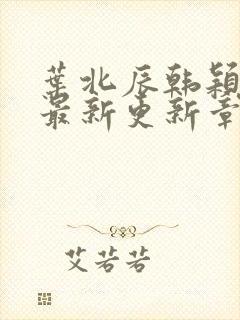 叶北辰韩颖
最新更新章
艾若若